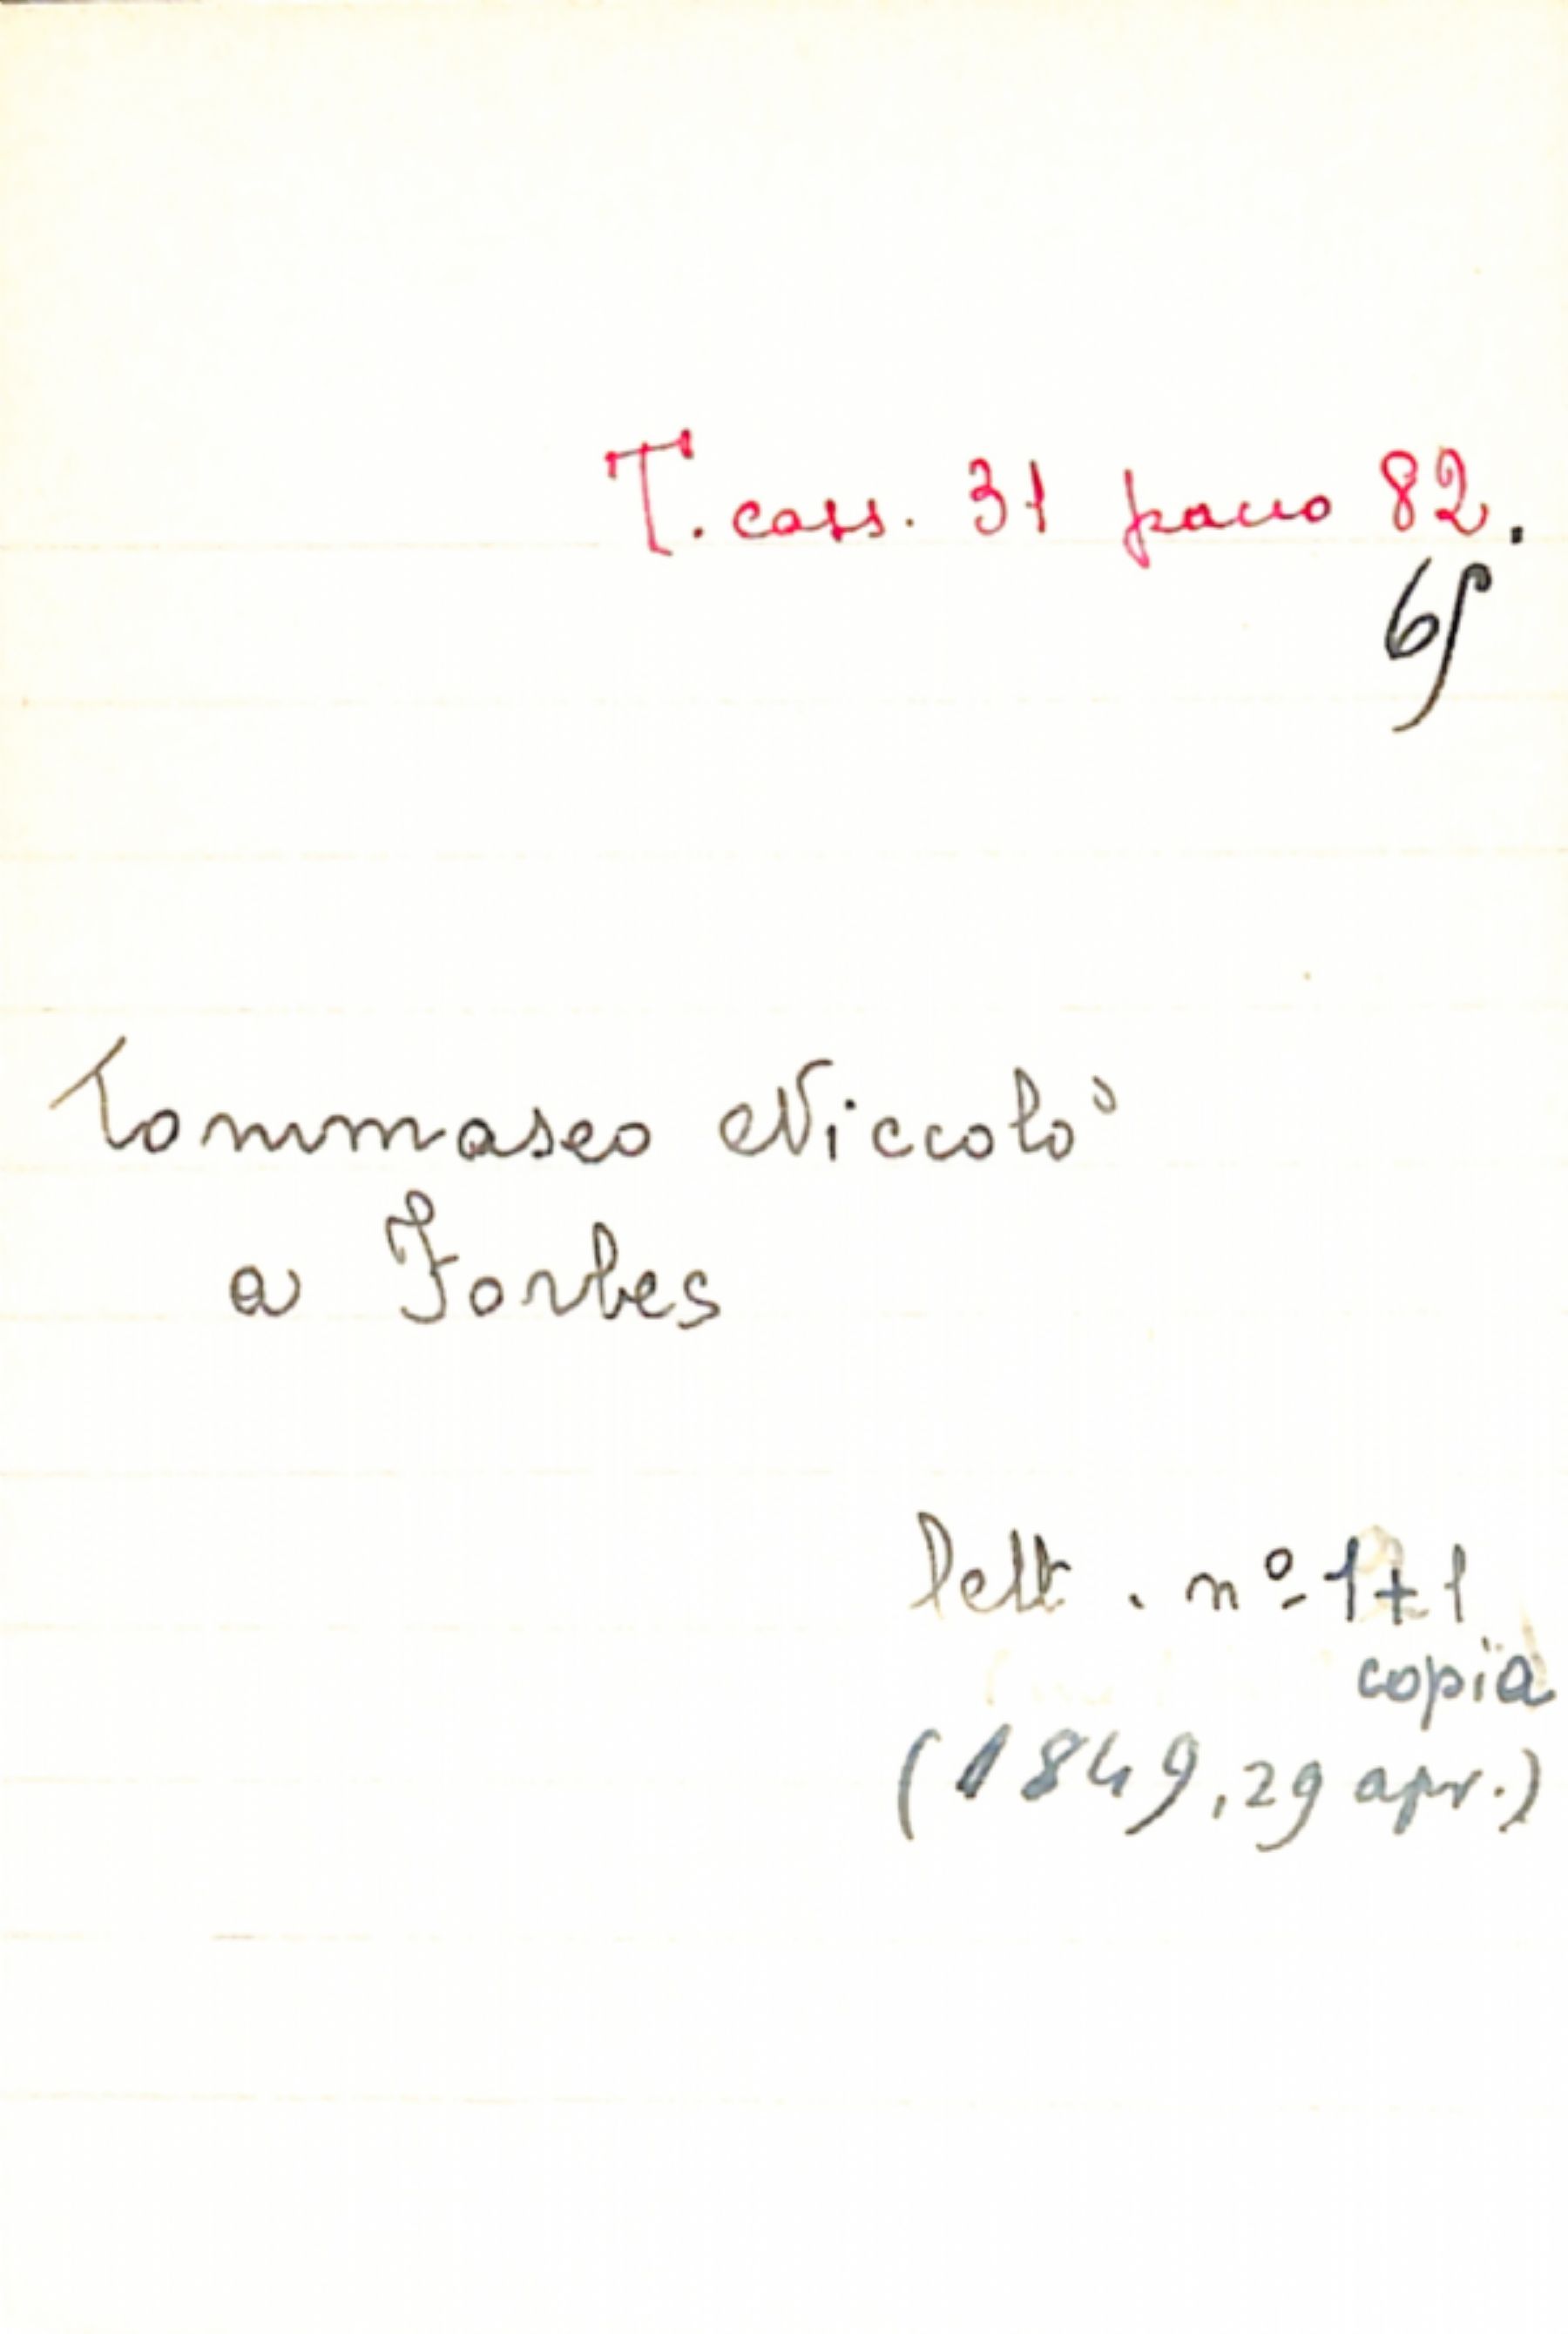 T. cass. 31 pacco 82.
6
Tommaseo Niccolò
a Forbes
lett. nº 1+1
copia
(1849, 29 apr.)